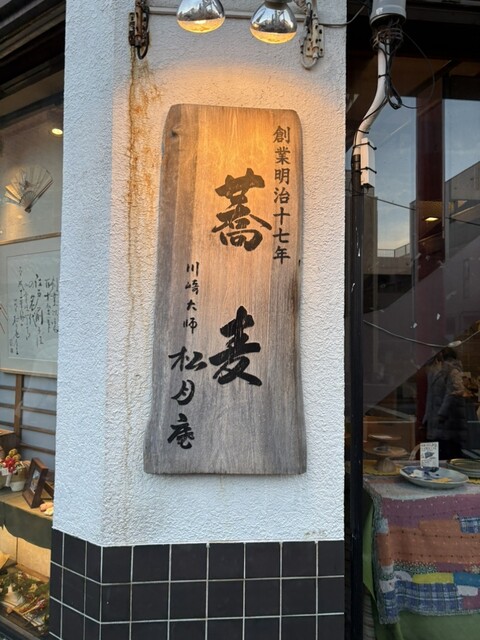 創業明治十七年
蕎麦
川崎大師
松月庵